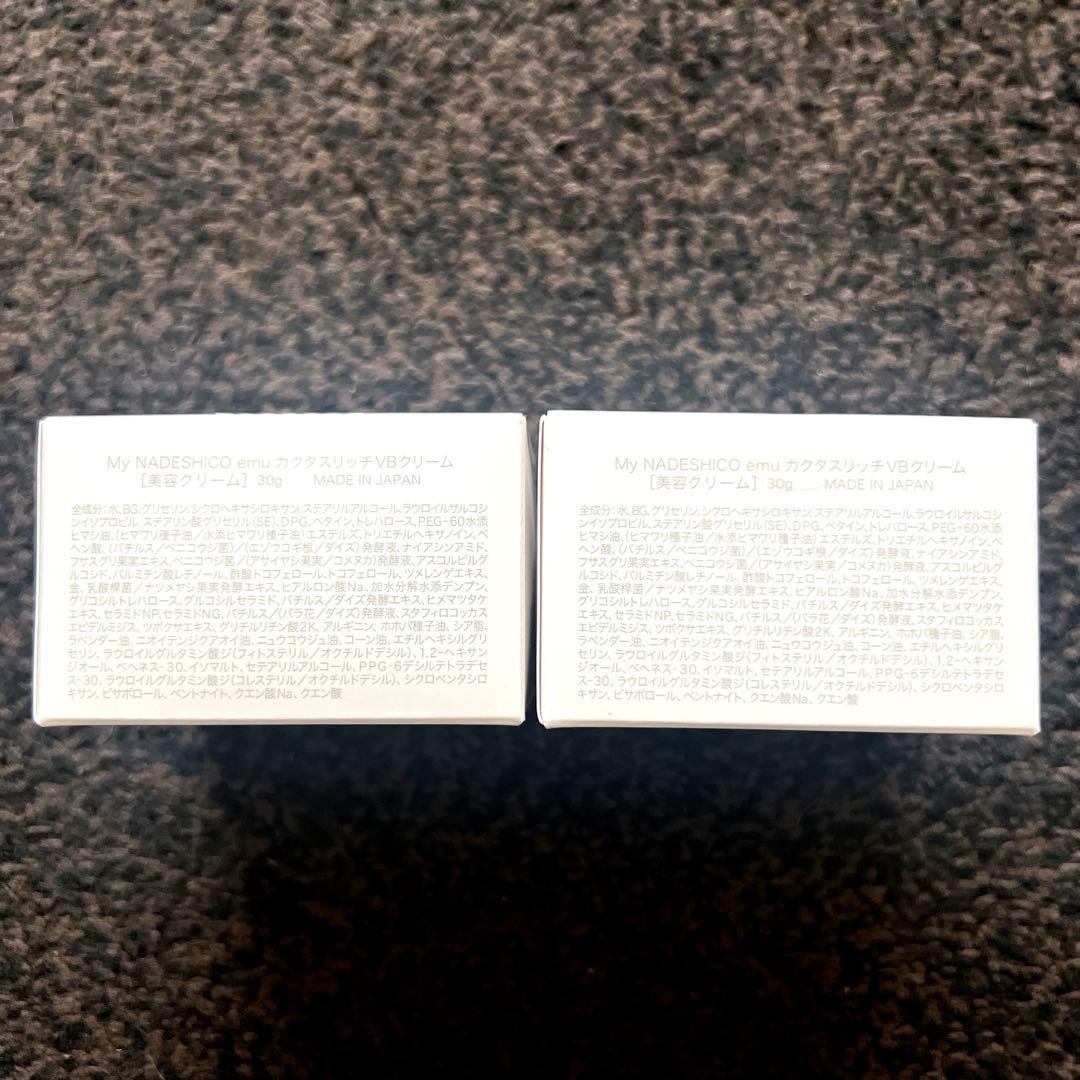 My NADESHICO emu カクタスリッチVBクリーム
［美容クリーム］ 30g MADE IN JAPAN
全成分：水、BG、グリセリン、シクロヘキサシロキサン、ステアリルアルコール、ラウロイルサルコシ
ンイソプロピル、ステアリン酸グリセリル（SE）、DPG、ベタイン、トレハロース、PEG-60水添
ヒマシ油、（ヒマワリ種子油／水添ヒマワリ種子油）エステルズ、トリエチルヘキサノイン、ベ
ヘン酸、（バチルス／ベニコウジ菌）／（エゾウコギ根／ダイズ）発酵液、ナイアシンアミド、
フサスグリ果実エキス、ベニコウジ菌／（アサイヤシ果実／コメヌカ）発酵液、アスコルビルグ
ルコシド、パルミチン酸レチノール、酢酸トコフェロール、トコフェロール、ツメレンゲエキス、
金、乳酸桿菌／ナツメヤシ果実発酵エキス、ヒアルロン酸Na、加水分解水添デンプン、
グリコシルトレハロース、グルコシルセラミド、バチルス／ダイズ発酵エキス、ヒメマツタケ
エキス、セラミドNP、セラミドNG、バチルス／（バラ花／ダイズ）発酵液、スタフィロコッカス
エピデルミジス、ツボクサエキス、グリチルリチン酸2K、アルギニン、ホホバ種子油、シア脂、
ラベンダー油、ニオイテンジクアオイ油、ニュウコウジュ油、コーン油、エチルヘキシルグリ
セリン、ラウロイルグルタミン酸ジ（フィトステリル／オクチルドデシル）、1,2-ヘキサン
ジオール、ベヘネス-30、イソマルト、セテアリルアルコール、PPG-6デシルテトラデセ
ス-30、ラウロイルグルタミン酸ジ（コレステリル／オクチルドデシル）、シクロペンタシロ
キサン、ビサボロール、ベントナイト、クエン酸Na、クエン酸
My NADESHICO emu カクタスリッチVBクリーム
［美容クリーム］ 30g MADE IN JAPAN
全成分：水、BG、グリセリン、シクロヘキサシロキサン、ステアリルアルコール、ラウロイルサルコシ
ンイソプロピル、ステアリン酸グリセリル（SE）、DPG、ベタイン、トレハロース、PEG-60水添
ヒマシ油、（ヒマワリ種子油／水添ヒマワリ種子油）エステルズ、トリエチルヘキサノイン、ベ
ヘン酸、（バチルス／ベニコウジ菌）／（エゾウコギ根／ダイズ）発酵液、ナイアシンアミド、
フサスグリ果実エキス、ベニコウジ菌／（アサイヤシ果実／コメヌカ）発酵液、アスコルビルグ
ルコシド、パルミチン酸レチノール、酢酸トコフェロール、トコフェロール、ツメレンゲエキス、
金、乳酸桿菌／ナツメヤシ果実発酵エキス、ヒアルロン酸Na、加水分解水添デンプン、
グリコシルトレハロース、グルコシルセラミド、バチルス／ダイズ発酵エキス、ヒメマツタケ
エキス、セラミドNP、セラミドNG、バチルス／（バラ花／ダイズ）発酵液、スタフィロコッカス
エピデルミジス、ツボクサエキス、グリチルリチン酸2K、アルギニン、ホホバ種子油、シア脂、
ラベンダー油、ニオイテンジクアオイ油、ニュウコウジュ油、コーン油、エチルヘキシルグリ
セリン、ラウロイルグルタミン酸ジ（フィトステリル／オクチルドデシル）、1,2-ヘキサン
ジオール、ベヘネス-30、イソマルト、セテアリルアルコール、PPG-6デシルテトラデセ
ス-30、ラウロイルグルタミン酸ジ（コレステリル／オクチルドデシル）、シクロペンタシロ
キサン、ビサボロール、ベントナイト、クエン酸Na、クエン酸